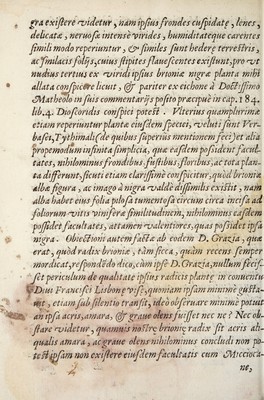 græ existere videtur, nam ipsius frondes cuspidatę, lenes,
delicatæ, neruosæ intensè virides, humiditateque carentes
simili modo reperiuntur, & similes sunt hederę terrestris,
ac smilacis folijs, cuius stipites flauescentes existunt, pro vt
nudius tertius ex viridi ipsius brionię nigra planta mihi
allata conspicere licuit, & pariter ex eichone à Doctissimo
Matheolo in suis commentarijs posito præcipuè in cap. 184.
lib. 4. Dioscoridis conspici potest. Vlterius quamplurimæ
etiam reperiuntur plantæ eiusdem speciei, veluti sunt Ver-
basci, Tythimali (de quibus superius mentionem feci) et alia
propemodum infinita simplicia, quæ easdem possident facul-
tates, nihilominus frondibus, fustibus, floribus, ac tota plan-
ta differunt, sicuti etiam clarissimè conspicitur, quòd brionia
albæ figura, ac imago à nigra valdè dissimilis existit, nam
alba habet eius folia pilosa tumentosa circum circa incisa ad
foliorum vitis viniferæ similitudinem, nihilominus easdem
possidet facultates, attamen valentiores, quas possidet ipsa
nigra. Obiectioni autem factæ ab eodem D. Grazia, quæ
erat, quòd radix brionię, tàm sicca, quàm recens semper
mordicat, respondendo dico, cum ipse D. Grazia, nullum fecis-
set periculum de qualitate ipsius radicis plantę in conuentu
Diui Francisci Lisbonę visę, quoniam ipsam minimè gusta-
uit, etiam sub silentio transit, ideò obseruare minimè potuit
an ipsa acris, amara, & graue olens fuisset nec ne? Nec ob-
stare videtur, quamuis nostrę brionię radix sit acris ab-
qualis amara, ac graue olens nihilominus concludi non po-
test ipsam non existere eiusdem facultatis cum Mecciocа-
ne,